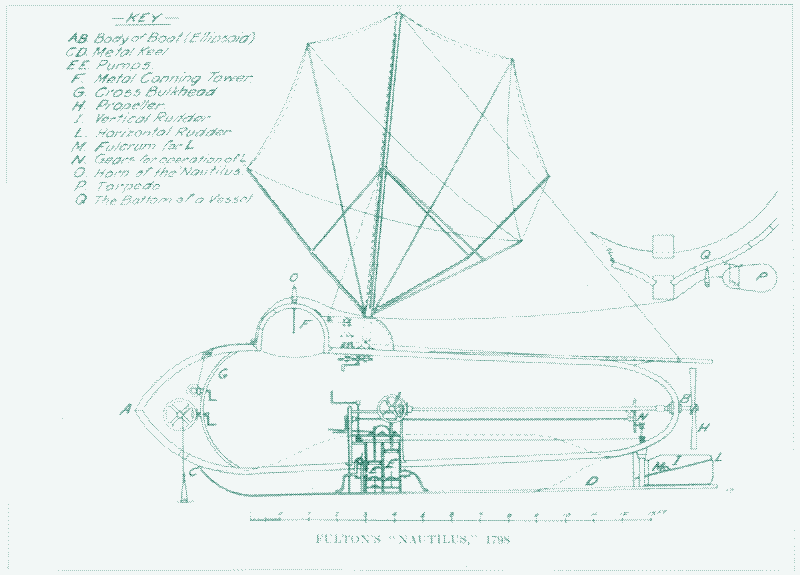 —KEY—
AB. Body of Boat (Ellipsoid)
CD. Metal Keel
EE. Pumps.
F. Metal Conning Tower
G. Cross Bulkhead
H. Propeller.
I. Vertical Rudder
L. Horizontal Rudder
M. Fulcrum for L
N. Gears for operation of L
O. Horn of the Nautilus.
P. Torpedo
Q The Bottom of a Vessel
O
F
Q
P
G
A
B
N
H
C
D
M
I
L
FULTON'S "NAUTILUS," 1798